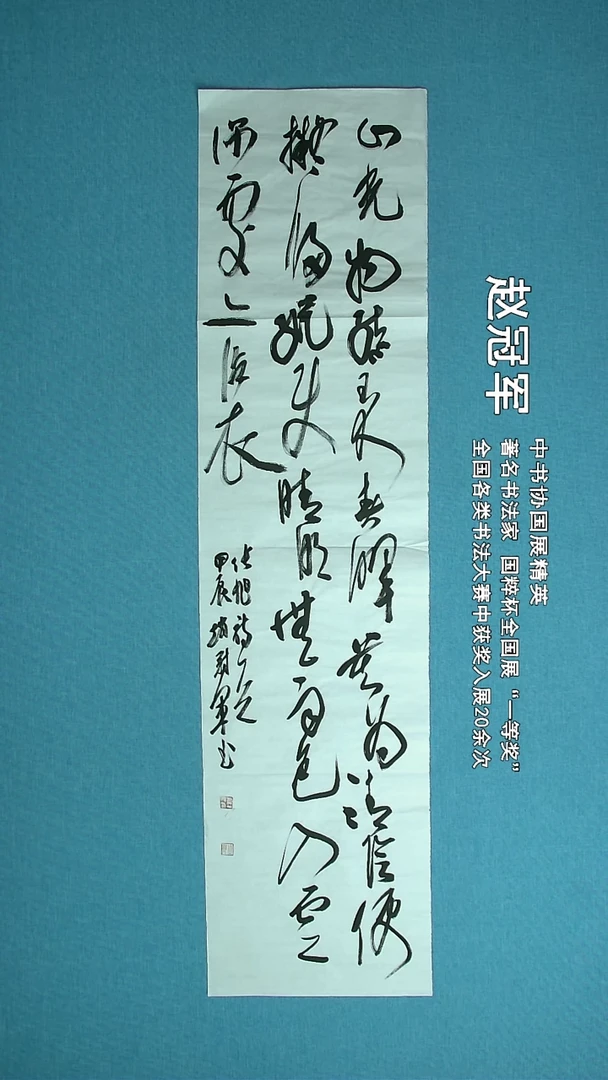 赵冠军
中书协国展精英
著名书法家 国粹杯全国展“一等奖”
全国各类书法大赛中获奖入展20余次
山光物態弄春暉莫為輕陰便
擬歸縱使晴明無雨色入雲
深處亦沾衣
張旭詩一首
甲辰 趙冠軍書